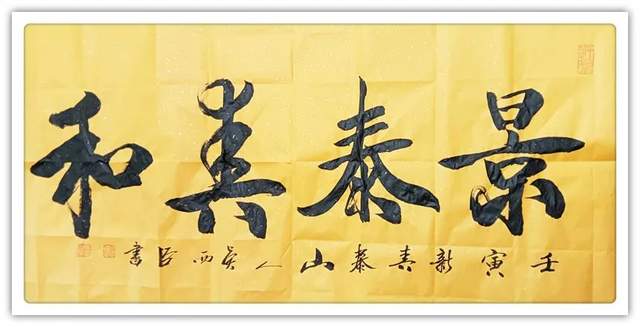 景泰美和
壬寅新春泰山人吳西臣書